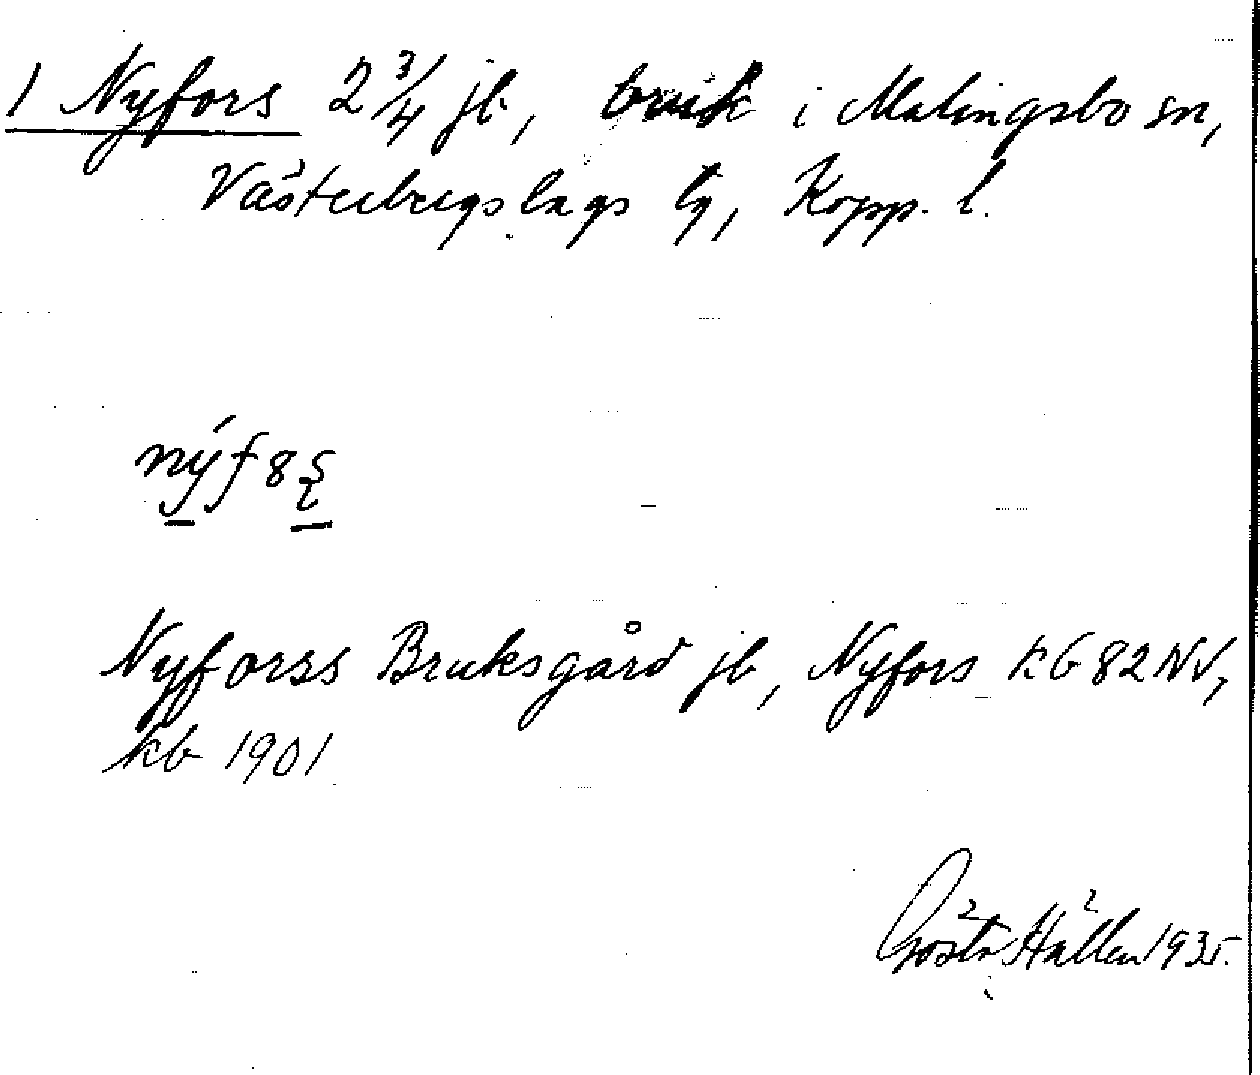 1 Nyfors 2 3/4 jb, bruk i Malingsbo sn,
Västerbergslags tg, Kopp. l.
nýf8ș
Nyforss Bruksgård jb, Nyfors kb 82 NV,
kb 1901
Gösta Hållen 1935.